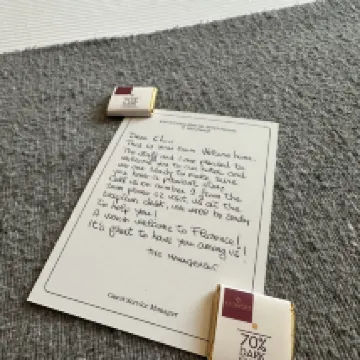 70%
DARK
Dear
This is your team Welcome here.
The staff and I are pleased to
welcome you to our hotel and
we are ready to make sure
you have a pleasant stay.
Call us on number 9 from the
room phone or visit us at the
reception desk, we will be ready
to help you!
A warm welcome to Florence!
It's great to have you among us!
The Management
Guest Service Manager
70%
DARK